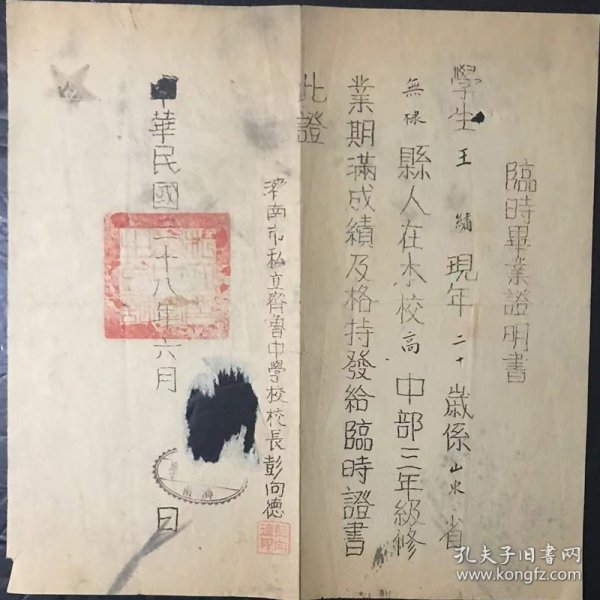 臨時畢業證明書
學生王繡現年二十歲係山東省
無棣縣人在本校高中部三年級修
業期滿成績及格特發給臨時證書
此證
濟南市私立齊魯中學校校長彭向德
華民國三十八年六月 日
孔夫子旧书网
www.kongfz.com